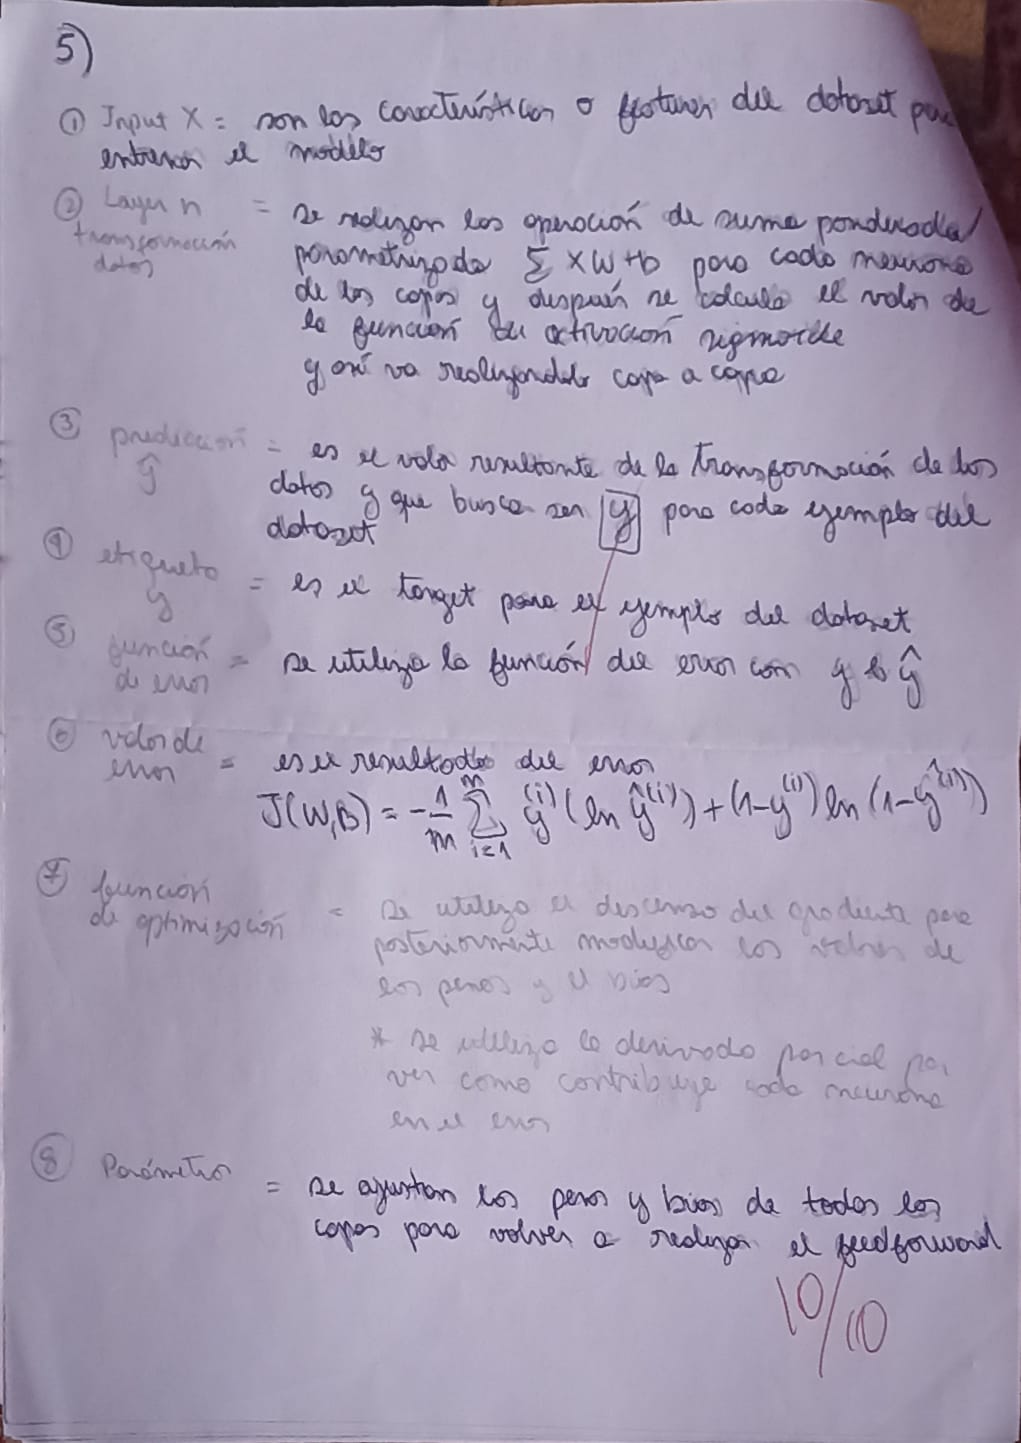 5)
① Input X = son las características o features del dataset para
entrenar el modelo
② Layer n
transformación
datos
= se realizan las operación de suma ponderada
parametrizada Σ XW+b para cada neurona
de las capas y después se calcula el valor de
la función de activación sigmoide
y así va realizandolo capa a capa
③ predicción
ŷ
= es el valor resultante de la transformación de los
datos y que busca ser y para cada ejemplo del
dataset
④ etiqueta
y
= es el target para el ejemplo del dataset
⑤ función
de error
= se utiliza la función del error con y & ŷ
⑥ valor de
error
= es el resultado del error
J(W,B) = -1/m Σ_{i=1}^{m} y^(i) (ln ŷ^(i)) + (1-y^(i)) ln (1-ŷ^(i))
⑦ función
de optimización
= se utiliza el descenso del gradiente para
posteriormente modificar los valores de
los pesos y el bias
* se utiliza la derivada parcial par
ver como contribuye cada neurona
en el error
⑧ Parámetros
= se ajustan los pesos y bias de todas las
capas para volver a realizar el feedforward
10/10